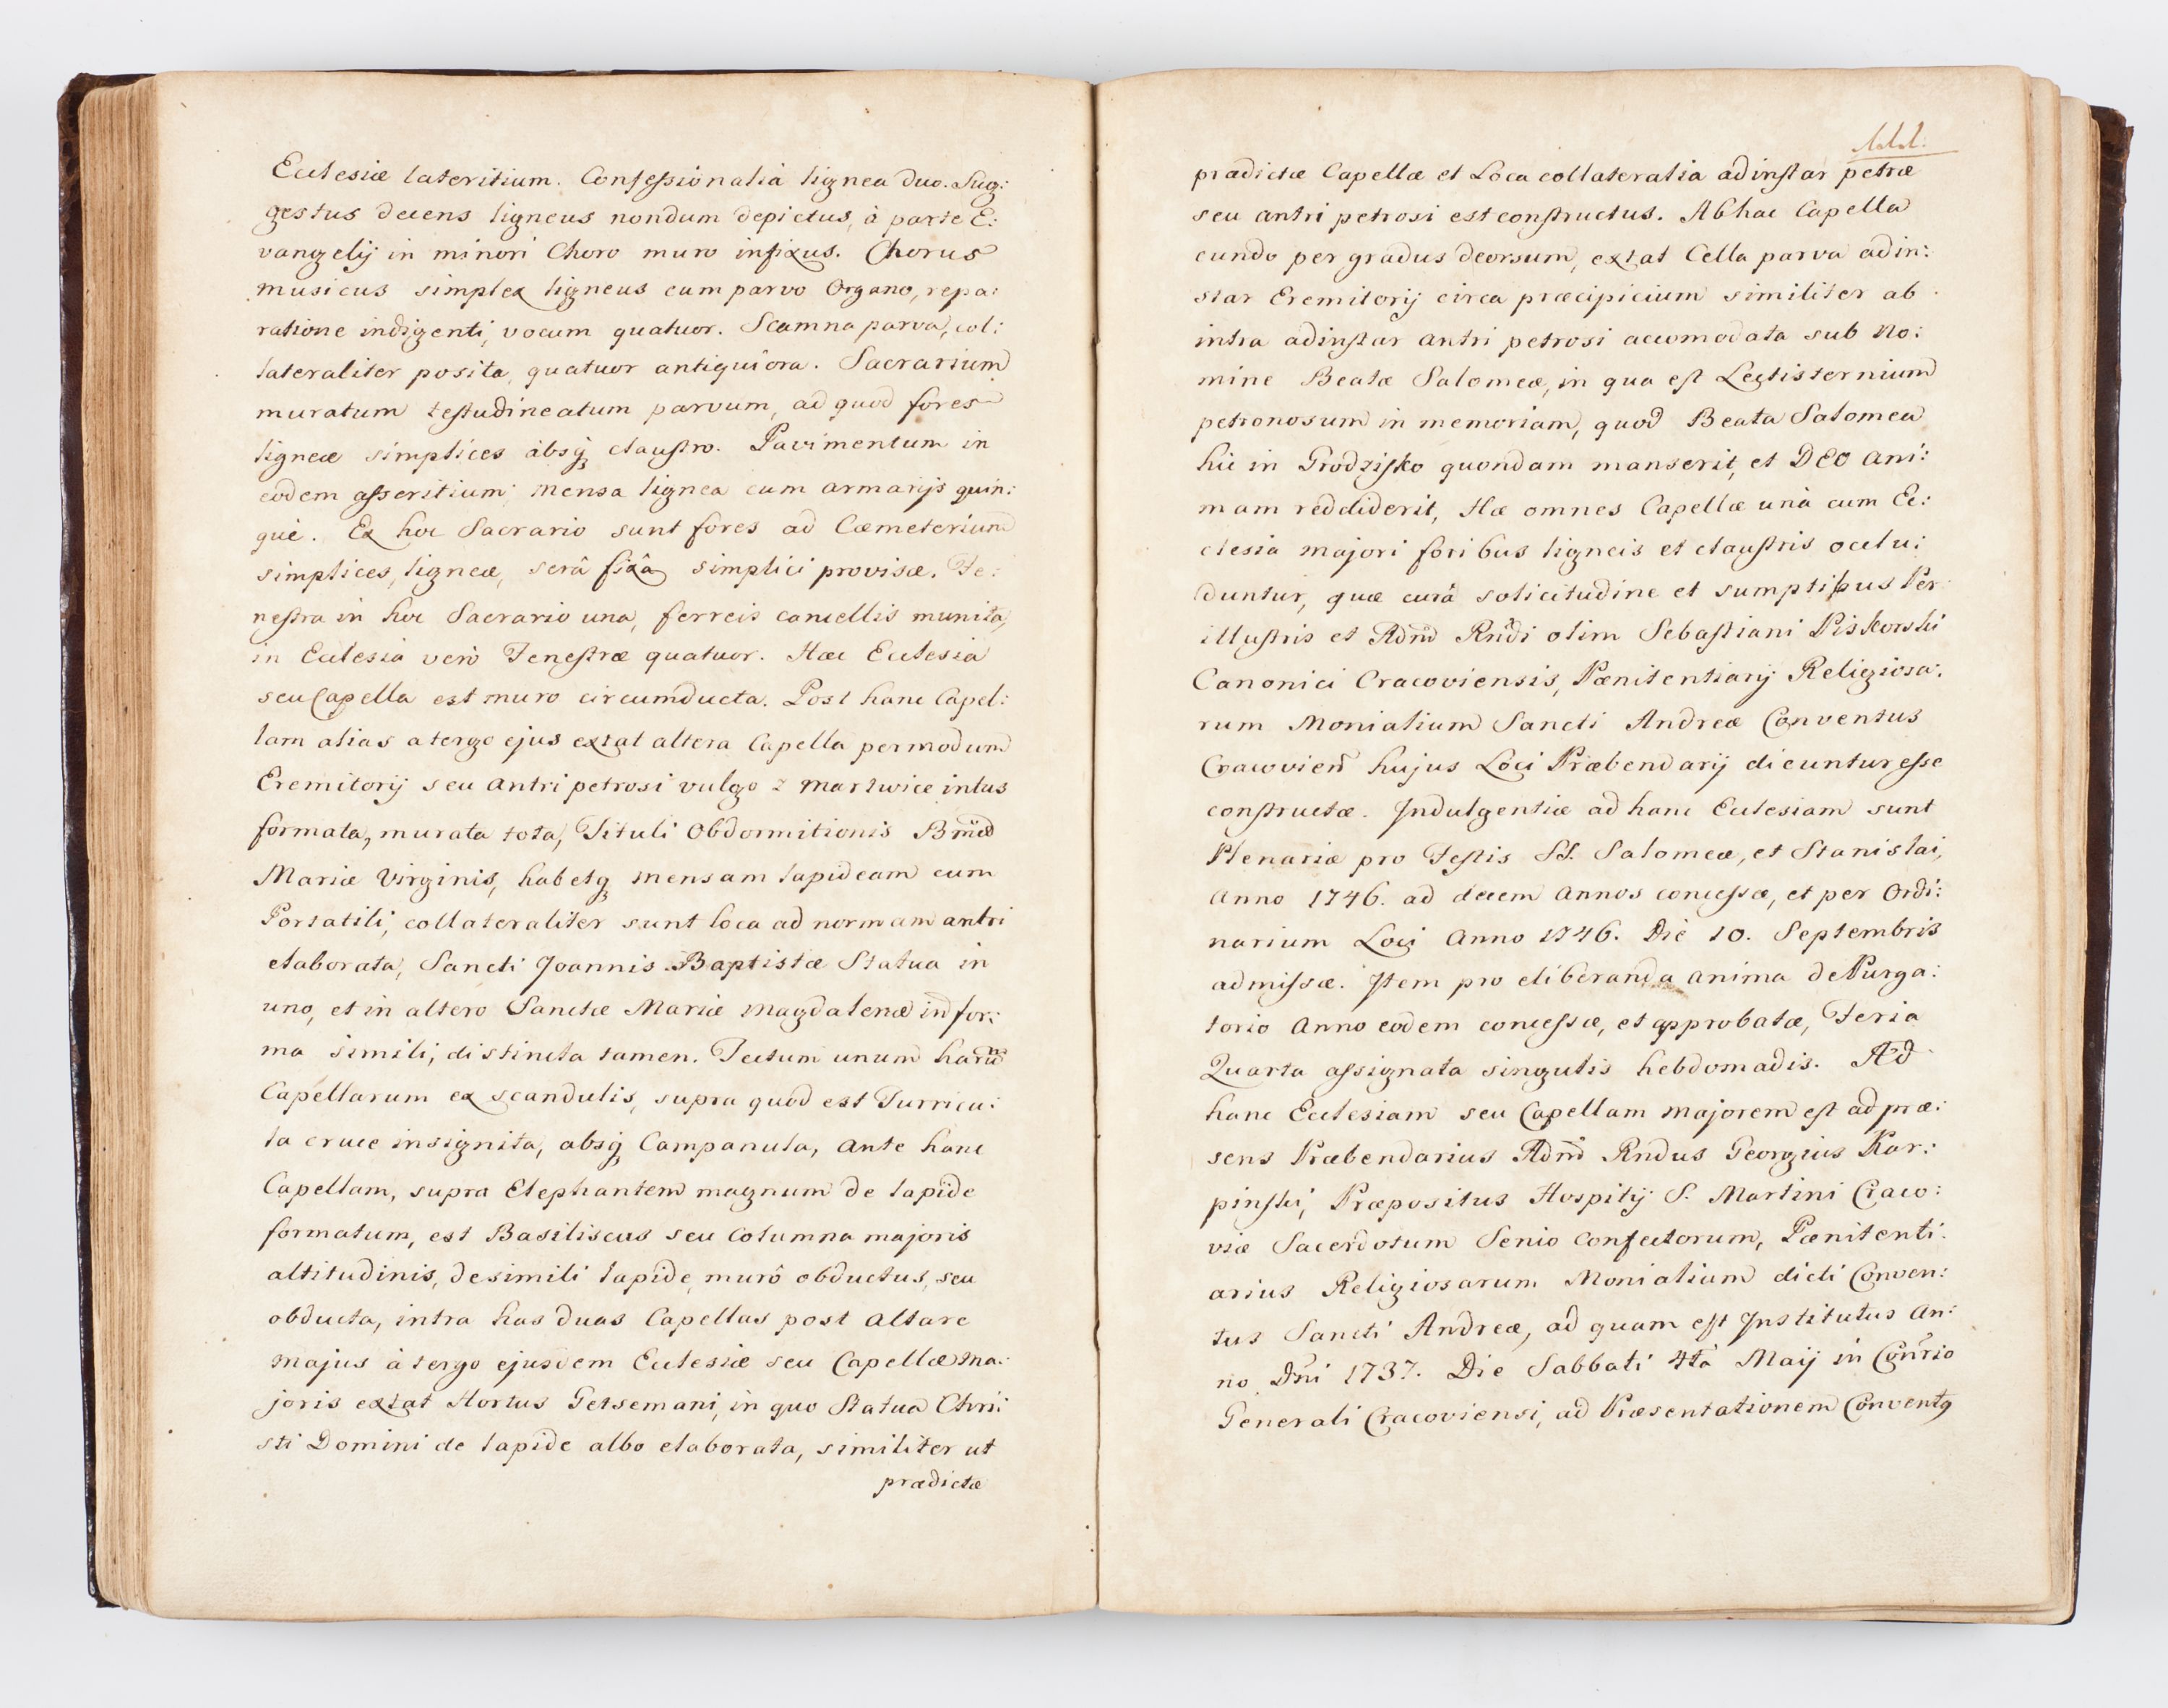 Ecclesiæ lateritium. Confessionalia lignea duo. Sug:
gestus decens ligneus nondum depictus, à parte E:
vangelij in minori Choro muro infixus. Chorus
musicus simplex ligneus cum parvo Organo, repa:
ratione indigenti, vocum quatuor. Scamna parva, col:
lateraliter posita, quatuor antiquiora. Sacrarium
muratum testudineatum parvum, ad quod fores
ligneæ simplices absq; claustro. Pavimentum in
eodem asseritium; mensa lignea cum armarijs quin:
què. Ex hoc Sacrario sunt fores ad Cæmeterium
simplices, ligneæ, serâ fixâ simplici provisæ. Fe:
nestra in hoc Sacrario una, ferreis cancellis munita,
in Ecclesia verò Fenestræ quatuor. Hæc Ecclesia
seu Capella est muro circumducta. Post hanc Capel:
lam alias a tergo ejus extat altera Capella per modum
Eremitorij seu antri petrosi vulgo z martwice intus
formata, murata tota, Tituli Obdormitionis Bmæ
Mariæ Virginis, habetq; mensam lapideam cum
Portatili, collateraliter sunt loca ad normam antri
elaborata, Sancti Joannis Baptistæ Statua in
uno, et in altero Sanctæ Mariæ Magdalenæ in for:
ma simili, distincta tamen. Tectum unum harũ
Capellarum ex scandulis, supra quod est Turricu:
la cruce insignita, absq; Campanula, ante hanc
Capellam, supra Elephantem magnum de lapide
formatum, est Basiliscus seu Columna majoris
altitudinis, de simili lapide, murô obductus, seu
obducta, intra has duas Capellas post Altare
majus à tergo ejusdem Ecclesiæ seu Capellæ Ma:
joris extat Hortus Getsemani, in quo Statua Chri:
sti Domini de lapide albo elaborata, similiter ut
prædictæ
prædictæ Capellæ et Loca collateralia adinstar petræ
seu antri petrosi est constructus. Ab hac Capella
eundo per gradus deorsum, extat Cella parva adin:
star Eremitorij circa præcipicium similiter ab
intra adinstar antri petrosi accomodata sub No:
mine Beatæ Salomeæ, in qua est Lectisternium
petronosum in memoriam, quod Beata Salomea
hic in Grodzisko quondam manserit, et DEO ani:
mam reddiderit, Hæ omnes Capellæ unà cum Ec:
clesia majori foribus ligneis et claustris occlu:
duntur, quæ curâ solicitudine et sumptibus Per
illustris et Adm̃ Rñdi olim Sebastiani Piskorski
Canonici Cracoviensis, Pœnitentiarij Religiosa:
rum Monialium Sancti Andreæ Conventus
Cracovien̄ hujus Loci Præbendarij dicuntur esse
constructæ. Jndulgentiæ ad hanc Ecclesiam sunt
Plenariæ pro Festis SS. Salomeæ, et Stanislai,
Anno 1746. ad decem Annos concessæ, et per Ordi:
narium Loci Anno 1746. Die 10. Septembris
admissæ. Jtem pro eliberanda anima de Purga:
torio Anno eodem concessæ, et approbatæ, Feria
Quarta assignata singulis hebdomadis. Ad
hanc Ecclesiam seu Capellam majorem est ad præ:
sens Præbendarius Adm̃ Rndus Georgius Kar:
pinski, Præpositus Hospitij S. Martini Craco:
viæ Sacerdotum Senio confectorum, Pœnitenti:
arius Religiosarum Monialium dicti Conven:
tus Sancti Andreæ, ad quam est Jnstitutus An:
no Dñi 1737. Die Sabbati 4tâ Maij in Coñrio
Generali Cracoviensi, ad Præsentationem Conventq